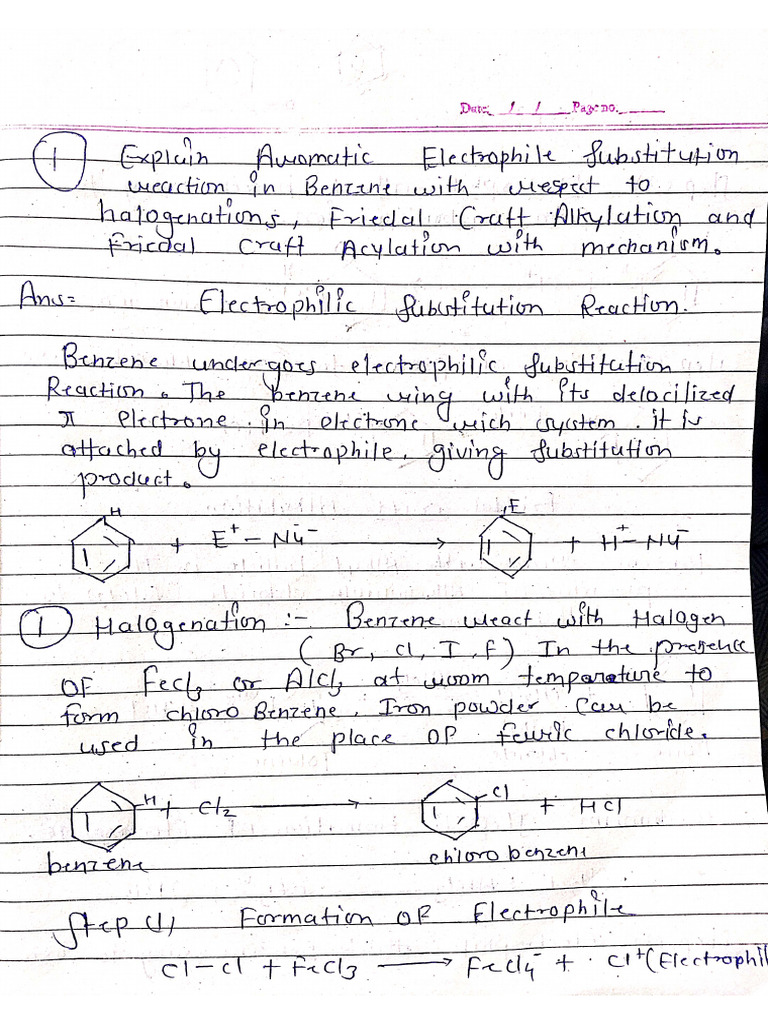 Date: / / Page no.
1 Explain Aromatic Electrophile Substitution
reaction in Benzene with respect to
halogenations, Friedal Craft Alkylation and
Friedal Craft Acylation with mechanism.
Ans= Electrophilic Substitution Reaction.
Benzene undergoes electrophilic substitution
Reaction. The benzene ring with its delocilized
π electrone in electrone rich system. it is
attached by electrophile, giving substitution
product.
H + E⁺ – Nu⁻ → E + H⁺ – Nu⁻
1 Halogenation :- Benzene react with Halogen
(Br, Cl, I, F) In the presence
OF FeCl₃ or AlCl₃ at room temparature to
form chloro Benzene, Iron powder can be
used in the place of ferric chloride.
H + Cl₂ → Cl + HCl
benzene chloro benzene
Step (1) Formation OF Electrophile
Cl–Cl + FeCl₃ → FeCl₄⁻ + Cl⁺ (Electrophil